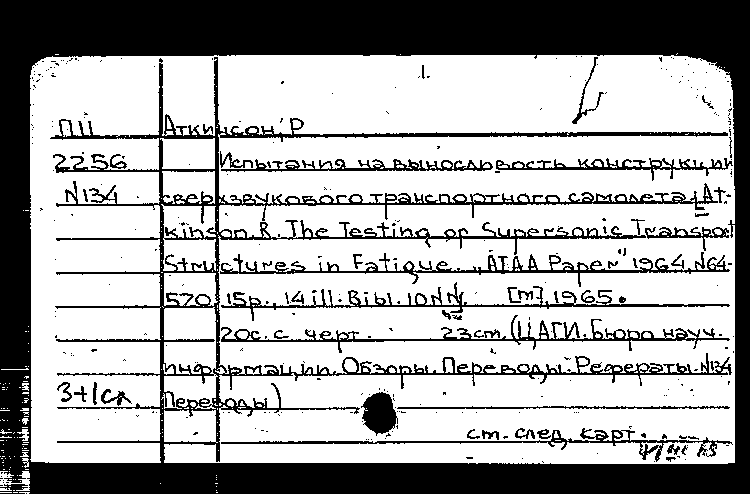 1.
П11 Аткинсон, Р
2256 Испытания на выносливость конструкции
N134 сверхзвукового транспортного самолета. [At-
kinson R. The Testing of Supersonic Transport
Structures in Fatigue. „AIAA Paper" 1964, N64-
570, 15p., 14 ill. Bibl. 10 NN. [М], 1965.
20с. с черт. 23см. (ЦАГИ. Бюро науч.
информации. Обзоры. Переводы. Рефераты. N134
3+1сл. Переводы)
см. след. карт.